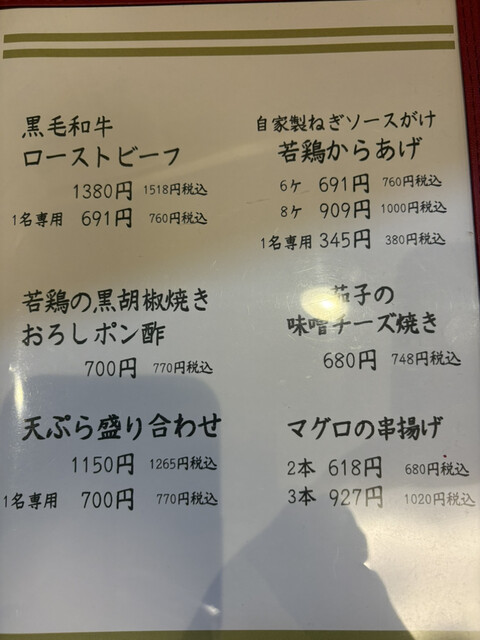 黒毛和牛
ローストビーフ
1380円 1518円税込
1名専用 691円 760円税込
若鶏の黒胡椒焼き
おろしポン酢
700円 770円税込
天ぷら盛り合わせ
1150円 1265円税込
1名専用 700円 770円税込
自家製ねぎソースがけ
若鶏からあげ
6ケ 691円 760円税込
8ケ 909円 1000円税込
1名専用 345円 380円税込
茄子の
味噌チーズ焼き
680円 748円税込
マグロの串揚げ
2本 618円 680円税込
3本 927円 1020円税込